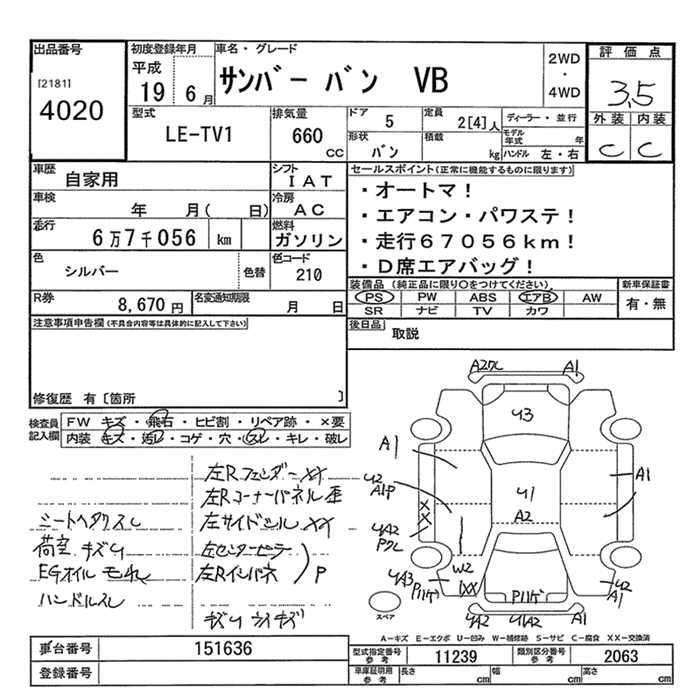 出品番号
[2181]
4020
初度登録年月
平成
19 6月
車名・グレード
サンバー バン VB
2WD
・
4WD
評価点
3.5
外装 内装
C C
型式
LE-TV1
排気量
660
CC
ドア
5
定員
2[4]人
ディーラー・並行
形状
バン
積載
kg
モデル年式
年
ハンドル 左・右
車歴
自家用
シフト
IAT
車検
年 月( 日)
冷房
AC
走行
6万7千056 km
燃料
ガソリン
色
シルバー
色替
色コード
210
R券
8,670円
名変通知期限
月 日
セールスポイント(正常に機能するものに限ります)
・オートマ!
・エアコン・パワステ!
・走行67056km!
・D席エアバッグ!
装備品(純正品に限り○をつけてください)
新車保証書
PS PW ABS エアB AW
SR ナビ TV カワ
有・無
後日品
取説
注意事項申告欄(不具合内容等は具体的に記入して下さい)
修復歴 有〔箇所 〕
検査員
記入欄
FW キズ・飛石・ヒビ割・リペア跡・×要
内装 キズ・汚レ・コゲ・穴・スレ・キレ・破レ
左Rフェンダー XX
左Rコーナーパネル
シートヘタクスレ
左サイドシル XX
荷室キズU
左センターピラー
EGオイルモレ
左Rインパネ
P
ハンドルスレ
A2クレ
A1
U3
A1
U2
A1P
U1
A2
A1
X
X
UA2
Pクレ
W2
XX
UA3
P
U2
A1
UA2
U1A2
スペア
A-キズ E-エクボ U-凹み W-補修跡 S-サビ C-腐食 XX-交換済
車台番号
151636
登録番号
型式指定番号
参考
11239
類別区分番号
参考
2063
車庫証明用
参考
長さ
cm
幅
cm
高さ
cm